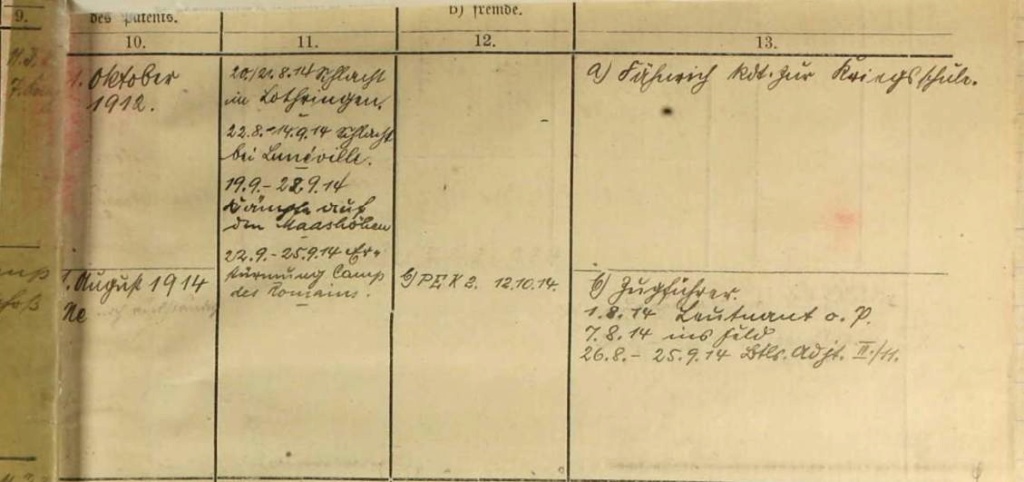 9.
des Patents.
b) fremde.
10.
11.
12.
13.
1. Oktober
1912.
20./21.8.14 Schlacht
in Lothringen,
22.8.-14.9.14 Schlacht
bei Lunéville.
19.9.- 22.9.14
Kämpfe auf
den Maashöhen
22.9.- 25.9.14 Er-
stürmung Camp
des Romains.
a) Fähnrich kdt. zur Kriegsschule.
1. August 1914
Ne
b) PEK 2. 12.10.14.
b) Zugführer.
1.8.14 Leutnant o. P.
7.8.14 ins Feld
26.8.- 25.9.14 Btls. Adjt. II./11.